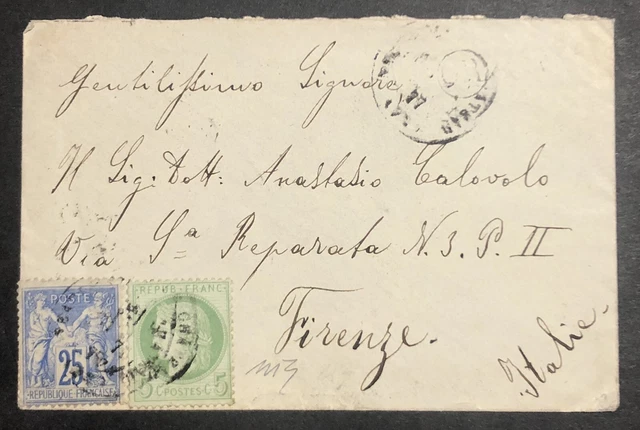 Gentilissimo Signore
Il Sig: Dott: Anastasio Calovolo
Via Sª Reparata N. 3. P. II
Firenze.
Italie.
POSTE
25
REPUBLIQUE FRANÇAISE
REPUB · FRANC
5 C POSTES C 5